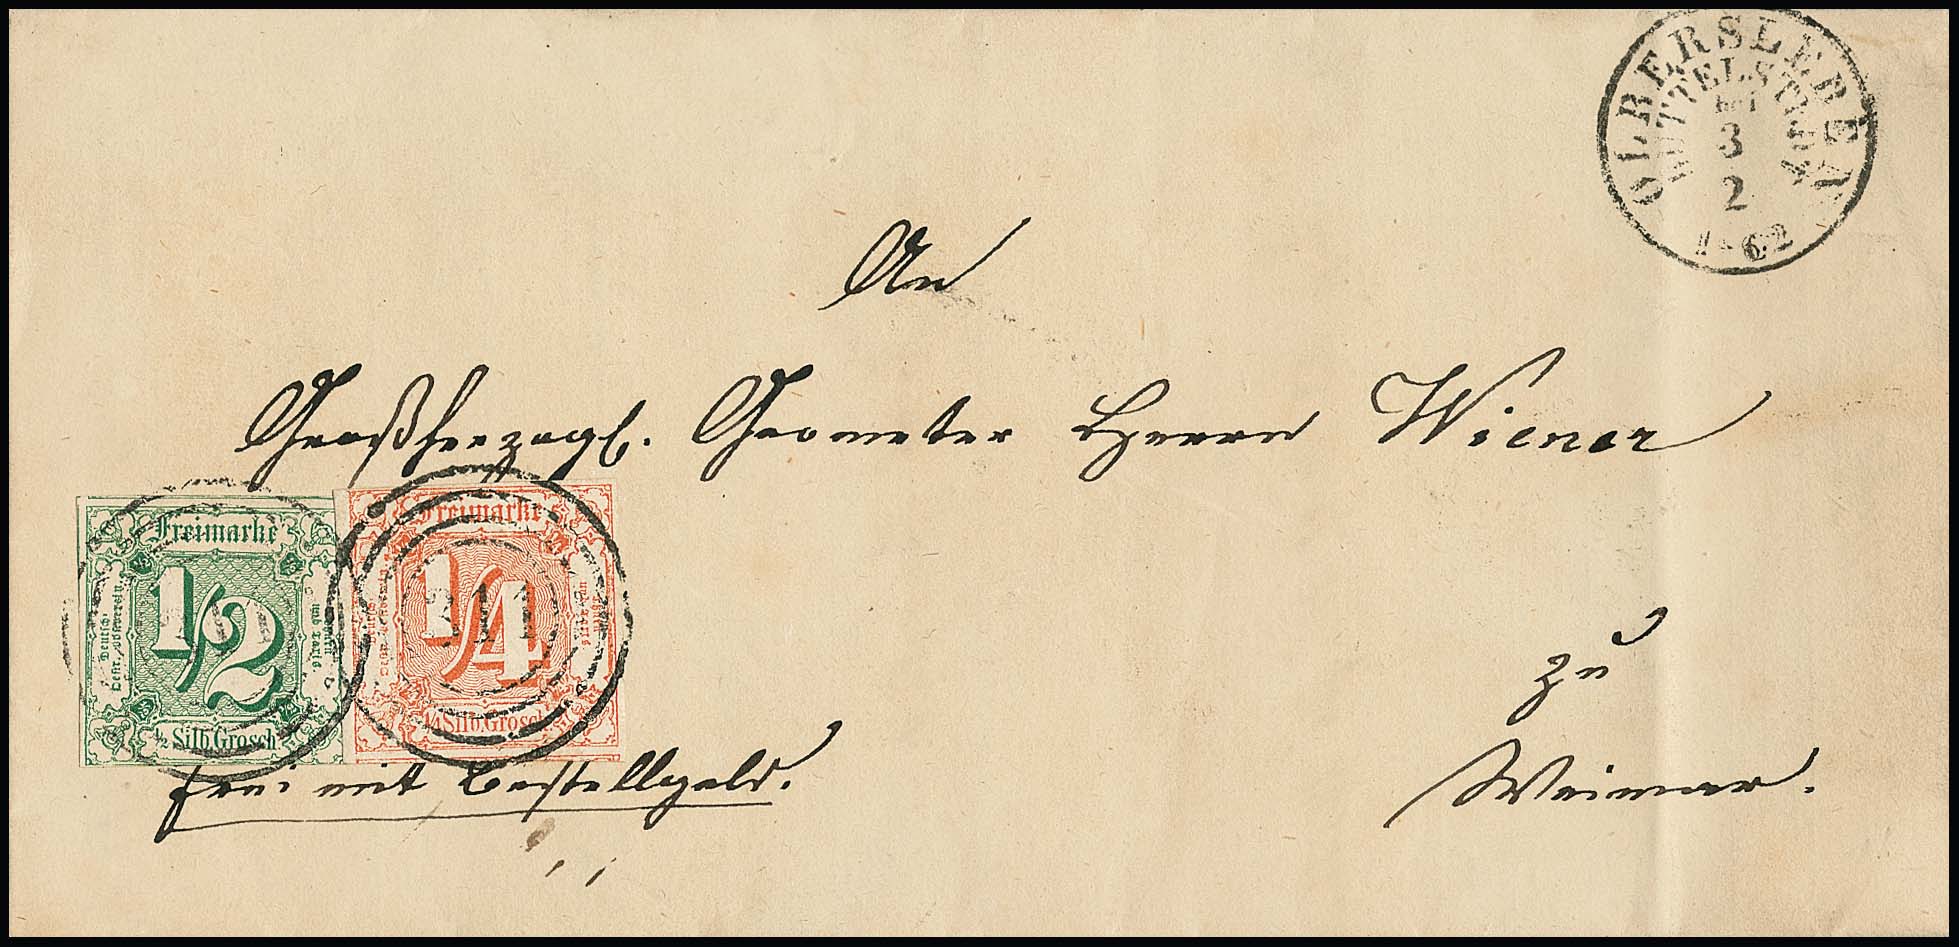 OLBERSLEBEN
BUTTELSTEDT
bei
3
2
1862
An
Großherzogl. Geometer Herrn Wiener
Freimarke
1/2
1/2 Silb. Grosch.
Freimarke
1/4
311
1/4 Silb. Grosch.
zu
Weimar.
frei mit Bestellgeld.